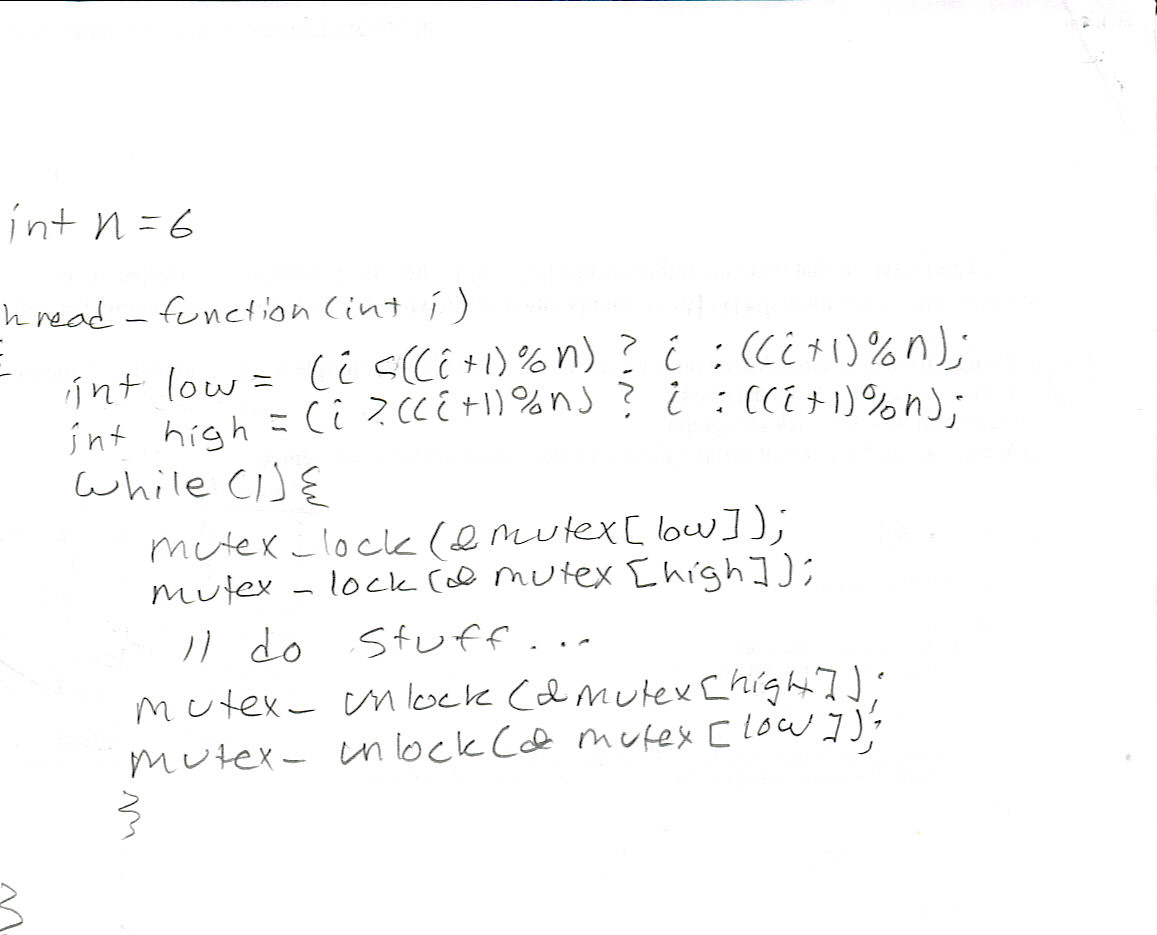 int n = 6
hread-function(int i)
{
int low = (i <((i+1)%n) ? i : ((i+1)%n);
int high = (i >((i+1)%n) ? i : ((i+1)%n);
while (1){
mutex_lock(&mutex[low]);
mutex-lock(&mutex[high]);
// do stuff...
mutex-unlock(&mutex[high]);
mutex-unlock(&mutex[low]);
}
}